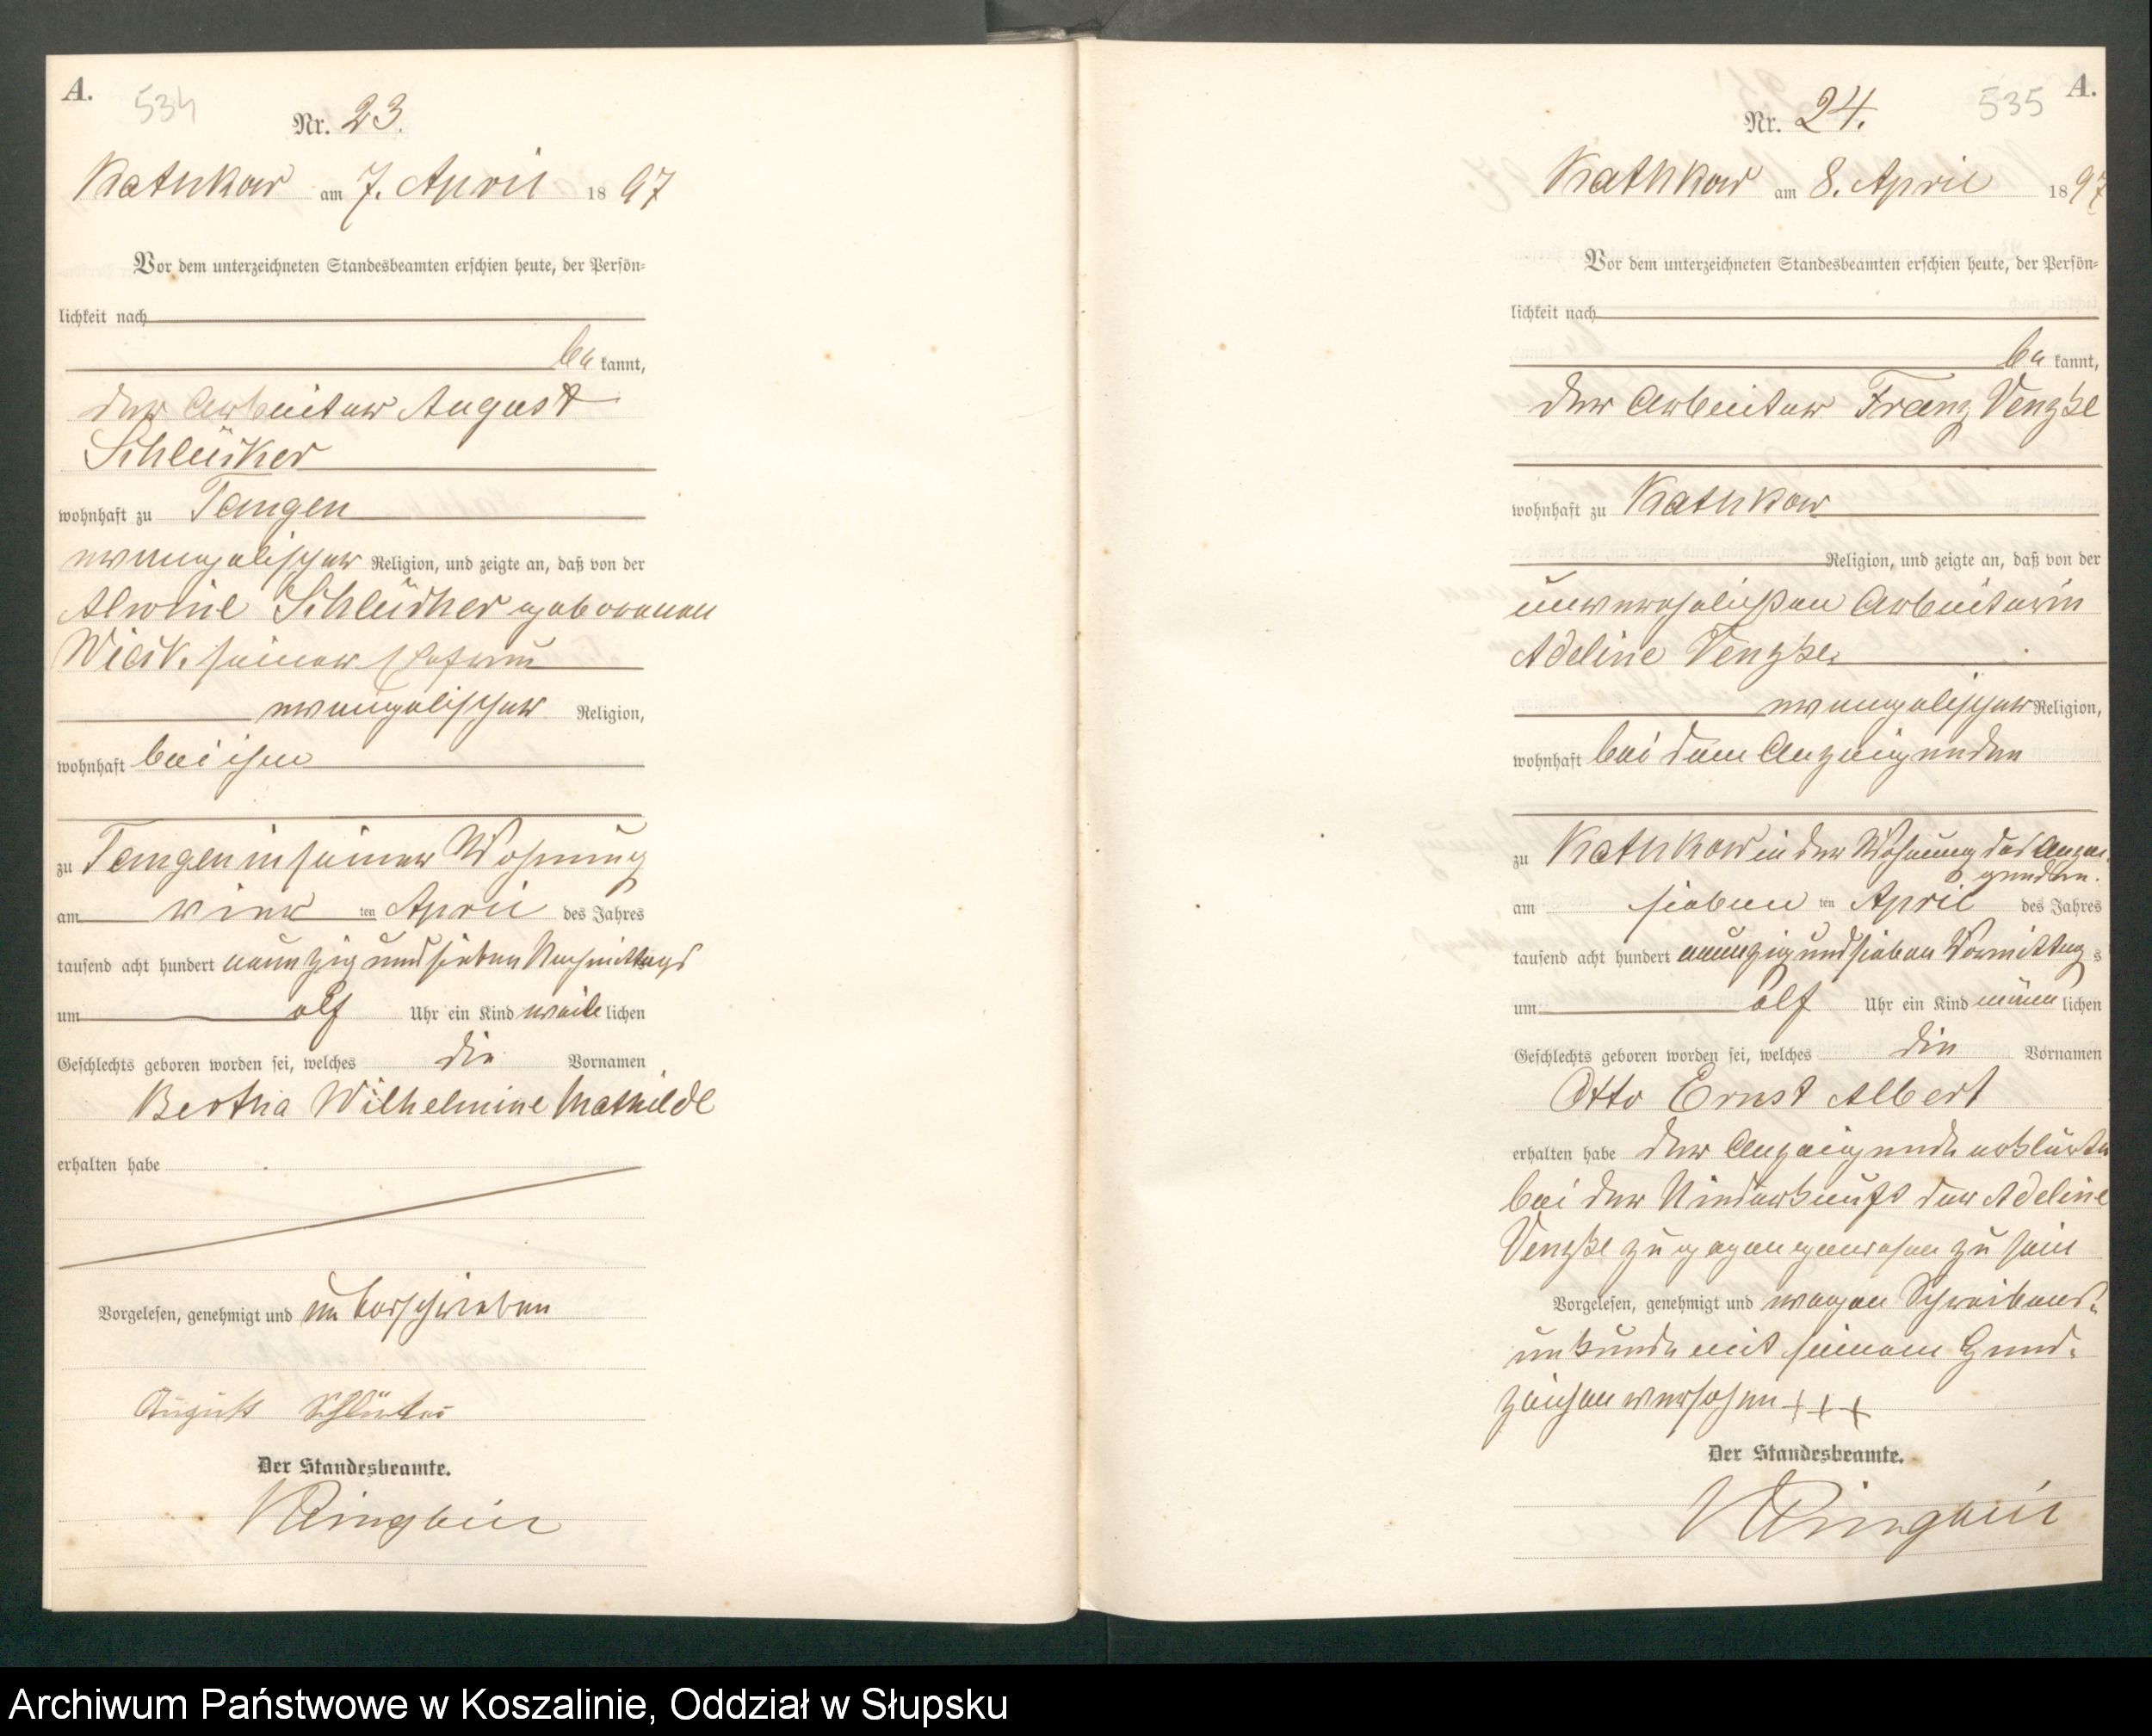 A.
534
Nr. 23.
Kathkow am 7. April 1897
Vor dem unterzeichneten Standesbeamten erschien heute, der Persön=
lichkeit nach
be kannt,
der Arbeiter August
wohnhaft zu Tangen
evangelischer Religion, und zeigte an, daß von der
Alwine geborenen
seiner Ehefrau
evangelischer Religion,
wohnhaft bei ihm
zu Tangen in seiner Wohnung
am vier ten April des Jahres
tausend acht hundert neunzig und sieben Nachmittags
um elf Uhr ein Kind weib lichen
Geschlechts geboren worden sei, welches die Vornamen
Bertha Wilhelmine Mathilde
erhalten habe
Vorgelesen, genehmigt und unterschrieben
August
Der Standesbeamte.
A.
535
Nr. 24.
Kathkow am 8. April 1897
Vor dem unterzeichneten Standesbeamten erschien heute, der Persön=
lichkeit nach
be kannt,
der Arbeiter Franz Venzke
wohnhaft zu Kathkow
Religion, und zeigte an, daß von der
unverehelichten Arbeiterin
Adeline Venzke
evangelischer Religion,
wohnhaft bei dem Anzeigenden
zu Kathkow in der Wohnung des Anzei-
genden.
am sieben ten April des Jahres
tausend acht hundert neunzig und sieben Vormittag s
um elf Uhr ein Kind männ lichen
Geschlechts geboren worden sei, welches die Vornamen
Otto Ernst Albert
erhalten habe der Anzeigende erklärte
bei der Niederkunft der Adeline
Venzke zugegen gewesen zu sein
Vorgelesen, genehmigt und wegen Schreibens-
unkunde mit seinem Hand-
zeichen versehen +++
Der Standesbeamte.
Archiwum Państwowe w Koszalinie, Oddział w Słupsku